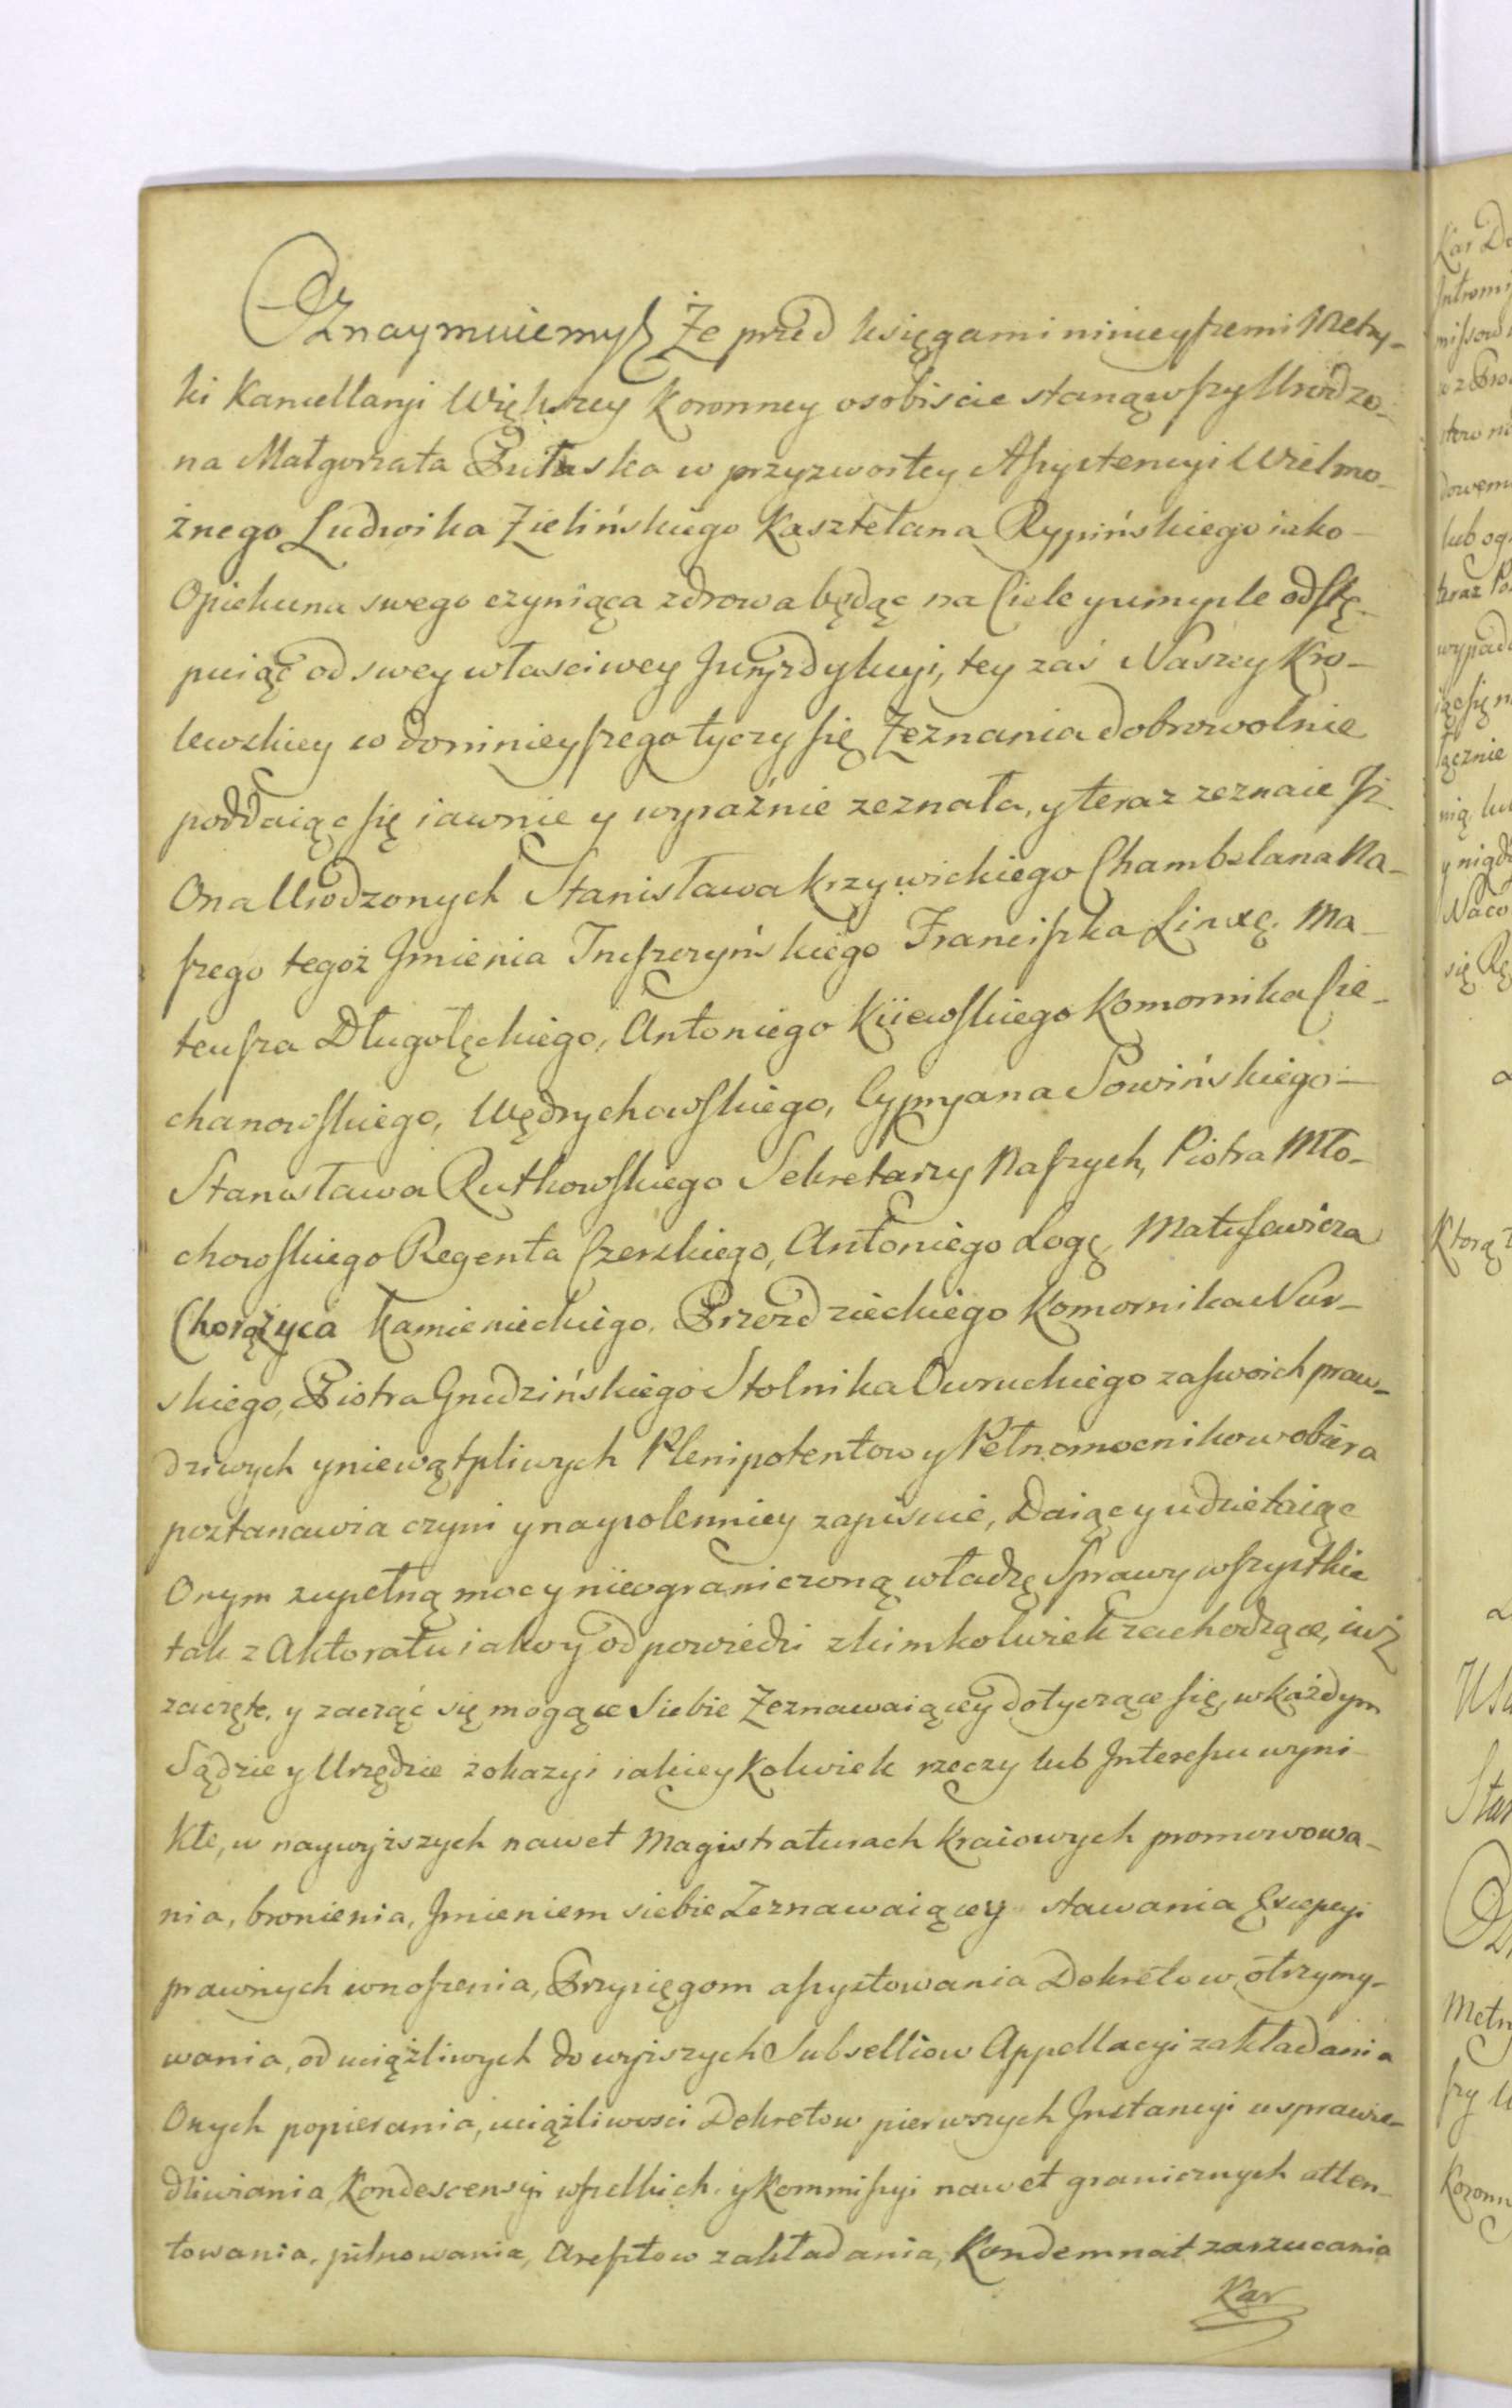 Oznaymuiemy Że przed księgami ninieyszemi Metry-
ki Kancellaryi Większey Koronney osobiscie stanąwszy Urodzo-
na Małgorzata Pułaska w przyzwoitey Assystencyi Wielmo-
żnego Ludwika Zielińskiego Kasztelana Rypińskiego iako
Opiekuna swego czyniąca zdrowa będąc na Ciele y umysle odstę-
puiąc od swey właściwey Juryzdykcyi, tey zaś Naszey Kro-
lewskiey co do ninieyszego tyczy się Zeznania dobrowolnie
poddaiąc się iawnie y wyraźnie zeznała, y teraz zeznaie Iż
Ona Urodzonych Stanisława Krzywickiego Chambelana Na-
szego tegoż Jmienia Truszczyńskiego Franciszka Linxę. Ma-
teusza Długołęckiego, Antoniego Kiiewskiego Komornika Cie-
chanowskiego, Wędrychowskiego, Cypryana Sowińskiego
Stanisława Rutkowskiego Sekretarzy Naszych, Piotra Mło-
chowskiego Regenta Czerskiego, Antoniego Logę Matusewicza
Chorążyca Kamienieckiego. Przezdzieckiego Komornika Nur-
skiego, Piotra Gnedzińskiego Stolnika Owruckiego za swoich praw-
dziwych y niewątpliwych Plenipotentow y Pełnomocnikow obiera
postanawia czyni y naysolenniey zapisuie, Daiąc y udzielaiąc
Onym zupełną moc y nieograniczoną władzę Sprawy wszystkie
tak z Aktoratu iako y odpowiedzi z kimkolwiek zachodzące, iuż
zaczęte, y zacząć się mogące Siebie Zeznawaiącey dotyczące się, w każdym
Sądzie y Urzędzie z okazyi iakieykolwiek rzeczy lub Interessu wyni-
kłe, w naywyższych nawet Magistraturach kraiowych promowowa-
nia, bronienia, Jmieniem siebie Zeznawaiącey stawania Excepcyi
prawnych wnoszenia, Przysięgom assystowania Dekretow otrzymy-
wania, od uciążliwych do wyższych Subselliow Appellacyi zakładania
Onych popierania, uciążliwosci Dekretow pierwszych Instancyi usprawie-
dliwiania Kondescensyi wszelkich. y Kommissyi nawet granicznych atten-
towania, pilnowania, Aresztow zakładania, Kondemnat zarzucania
Kar